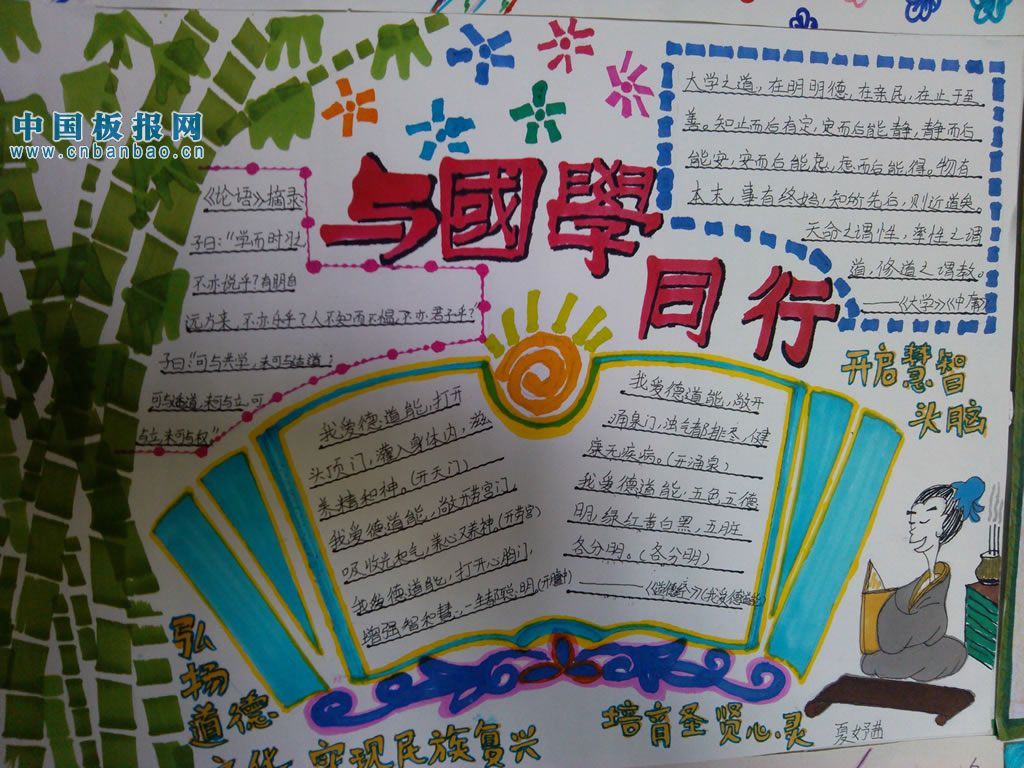 中国板报网
www.cnbanbao.cn
与國學
同行
《论语》摘录
子曰：“学而时习
不亦悦乎？有朋自
远方来，不亦乐乎？人不知而不愠，不亦君子乎”
子曰：“可与共学，未可与适道；
可与适道，未可与立，可
与立，未可与权”
大学之道，在明明德，在亲民，在止于至
善。知止而后有定，定而后能静，静而后
能安，安而后能虑，虑而后能得。物有
本末，事有终始，知所先后，则近道矣。
天命之谓性，率性之谓
道，修道之谓教。
——《大学》《中庸》
开启慧智
头脑
我爱德道能，打开
头顶门，灌入身体内，滋
养精和神。（开天门）
我爱德道能，敞开劳宫门，
吸收光和气，养心又养神。（开劳宫）
我爱德道能，打开心胸门，
增强智和慧，一生都聪明。
我爱德道能，敞开
涌泉门，浊气都排尽，健
康无疾病。（开涌泉）
我爱德道能，五色五德
明，绿红黄白黑，五脏
各分明。（各分明）
弘
扬
道德
文化 实现民族复兴
培育圣贤心灵
夏妤茜